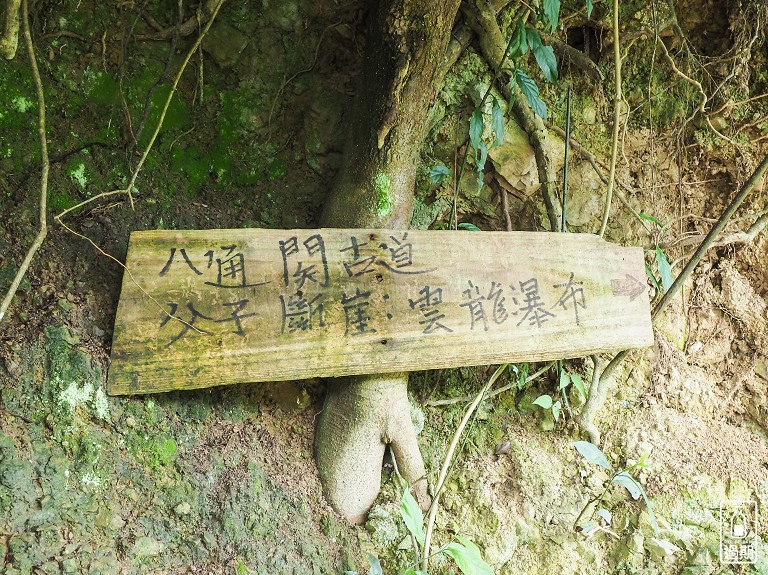 八通関古道
父子斷崖:雲龍瀑布 →
過期